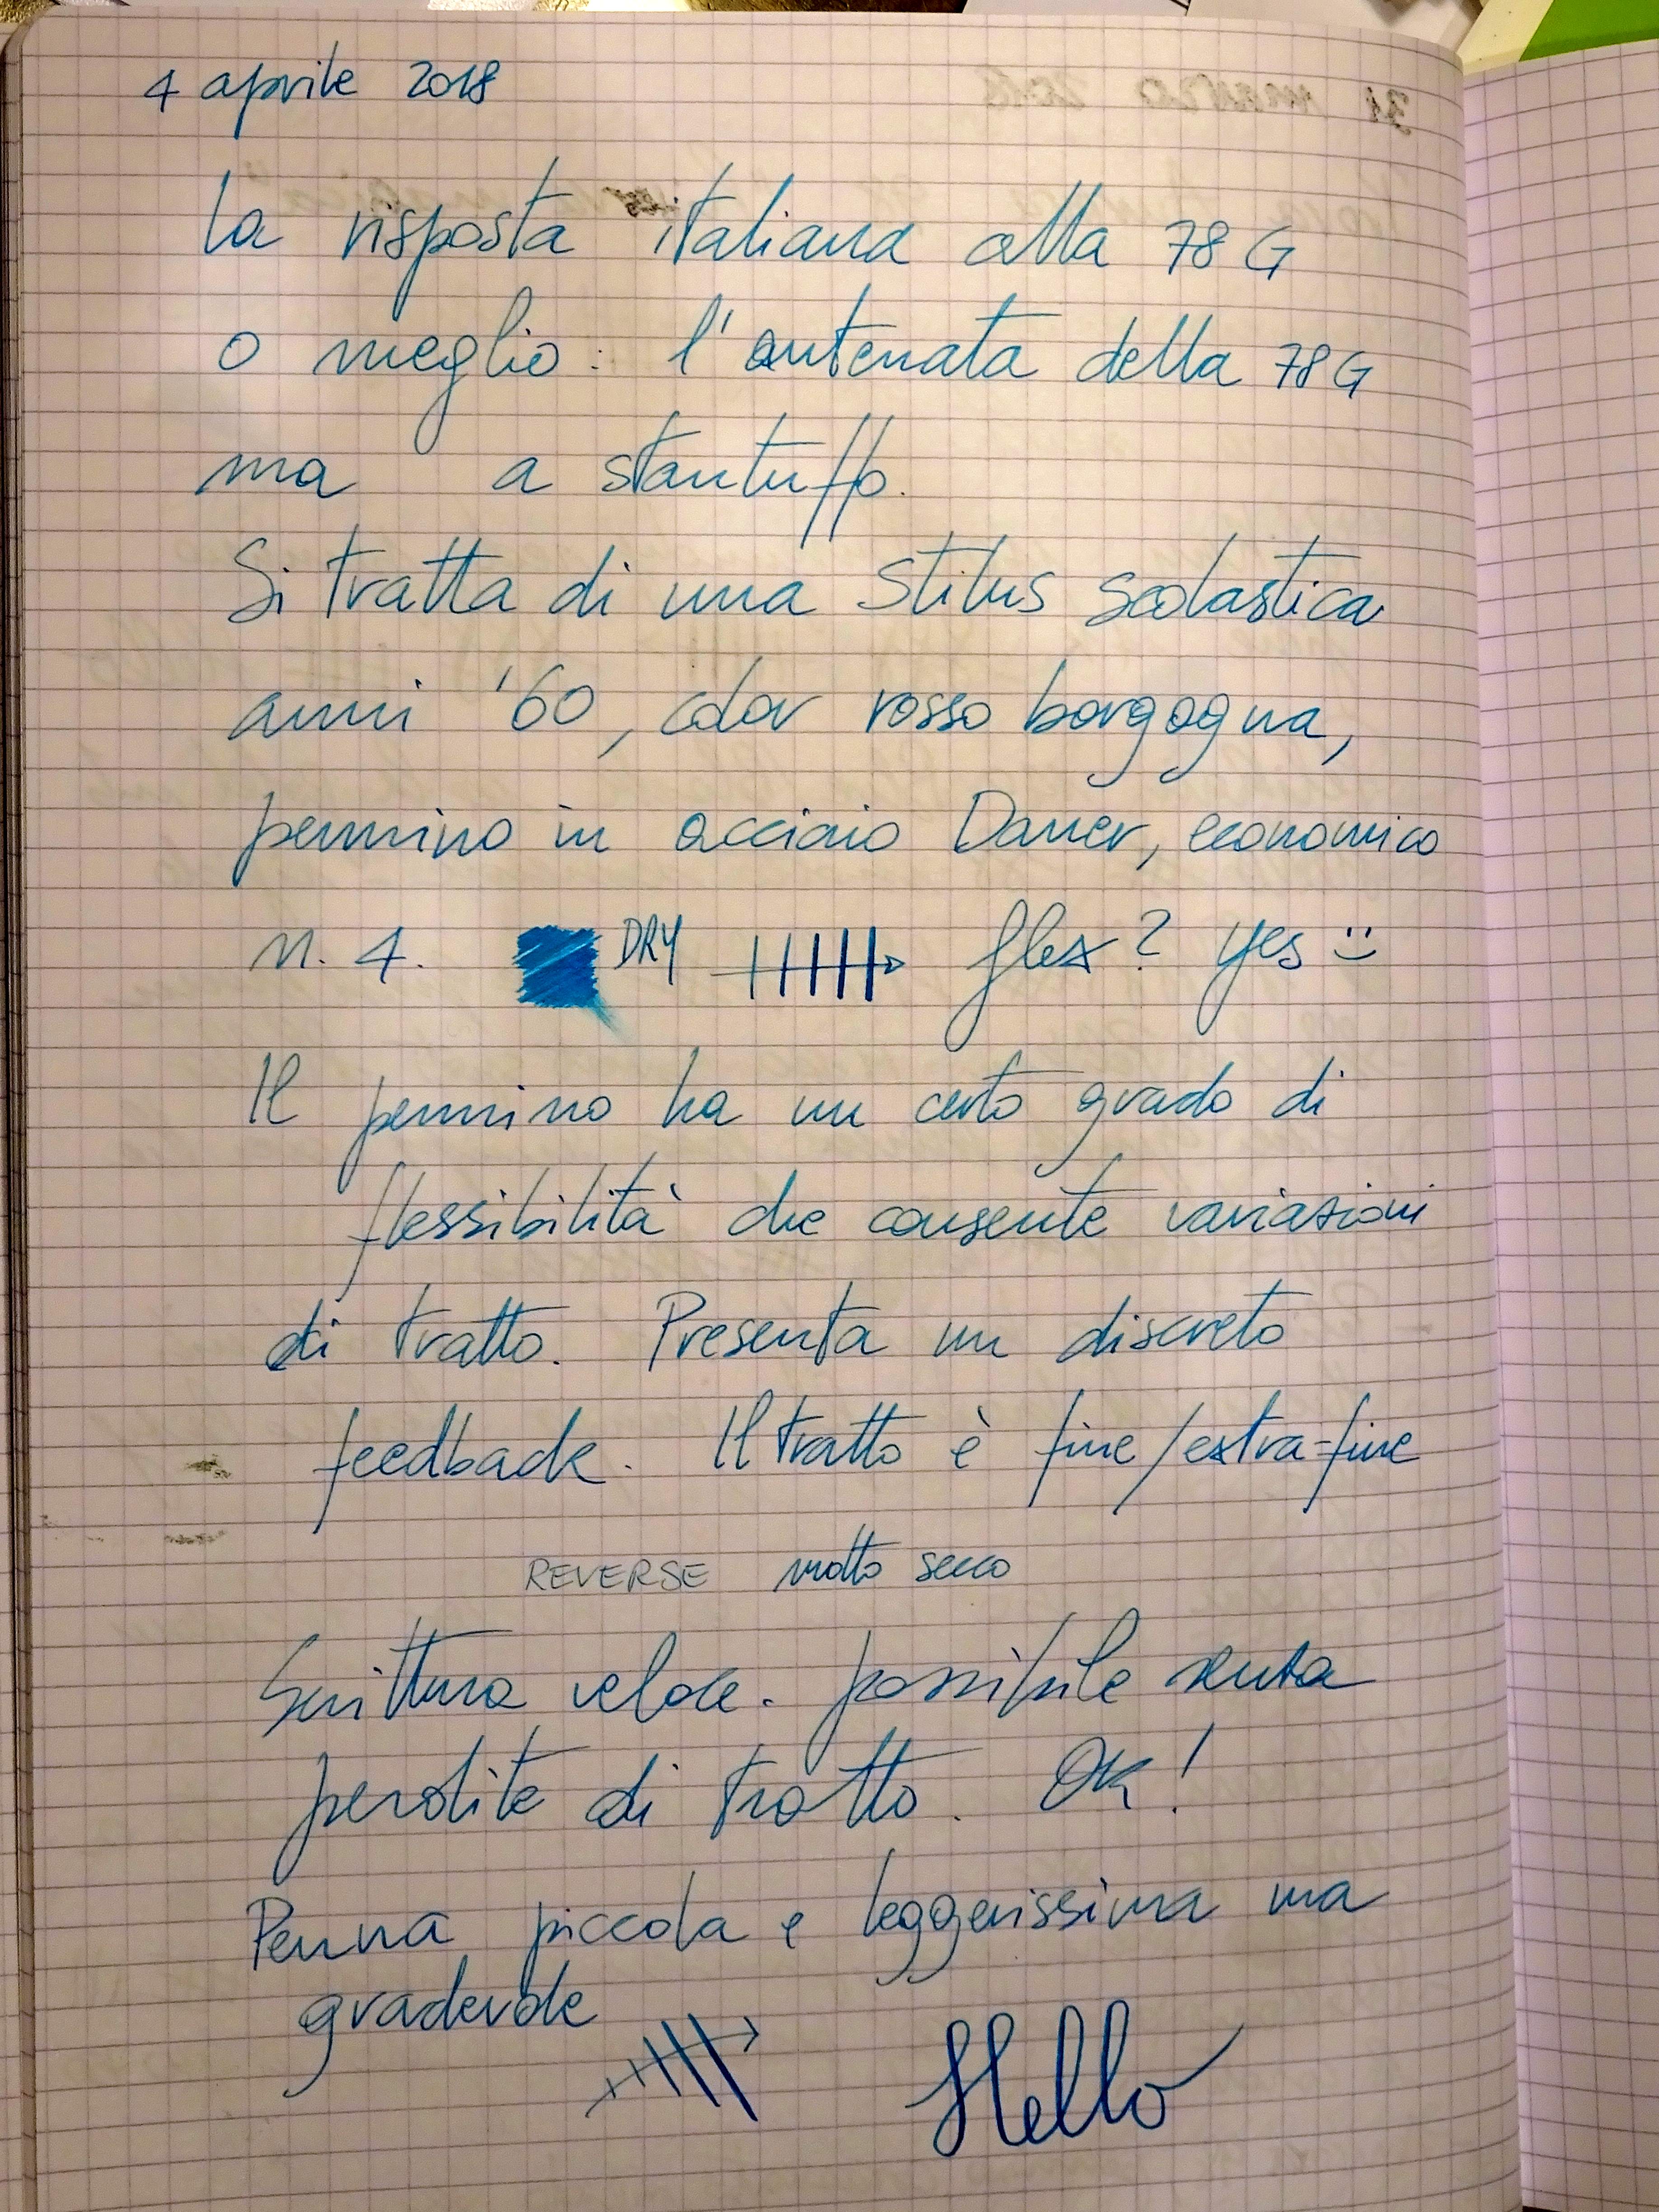 4 aprile 2018
31 marzo 2018
La risposta italiana alla 78 G
o meglio: l'antenata della 78G
ma a stantuffo.
Si tratta di una Stilus scolastica
anni '60, color rosso borgogna,
pennino in acciaio Daner, economico
n. 4. DRY flex? yes :)
Il pennino ha un certo grado di
flessibilità che consente variazioni
di tratto. Presenta un discreto
feedback. Il tratto è fine/extra-fine
REVERSE molto secco
Scrittura veloce. possibile senza
perdite di tratto. OK!
Penna piccola e leggerissima ma
gradevole
Hello